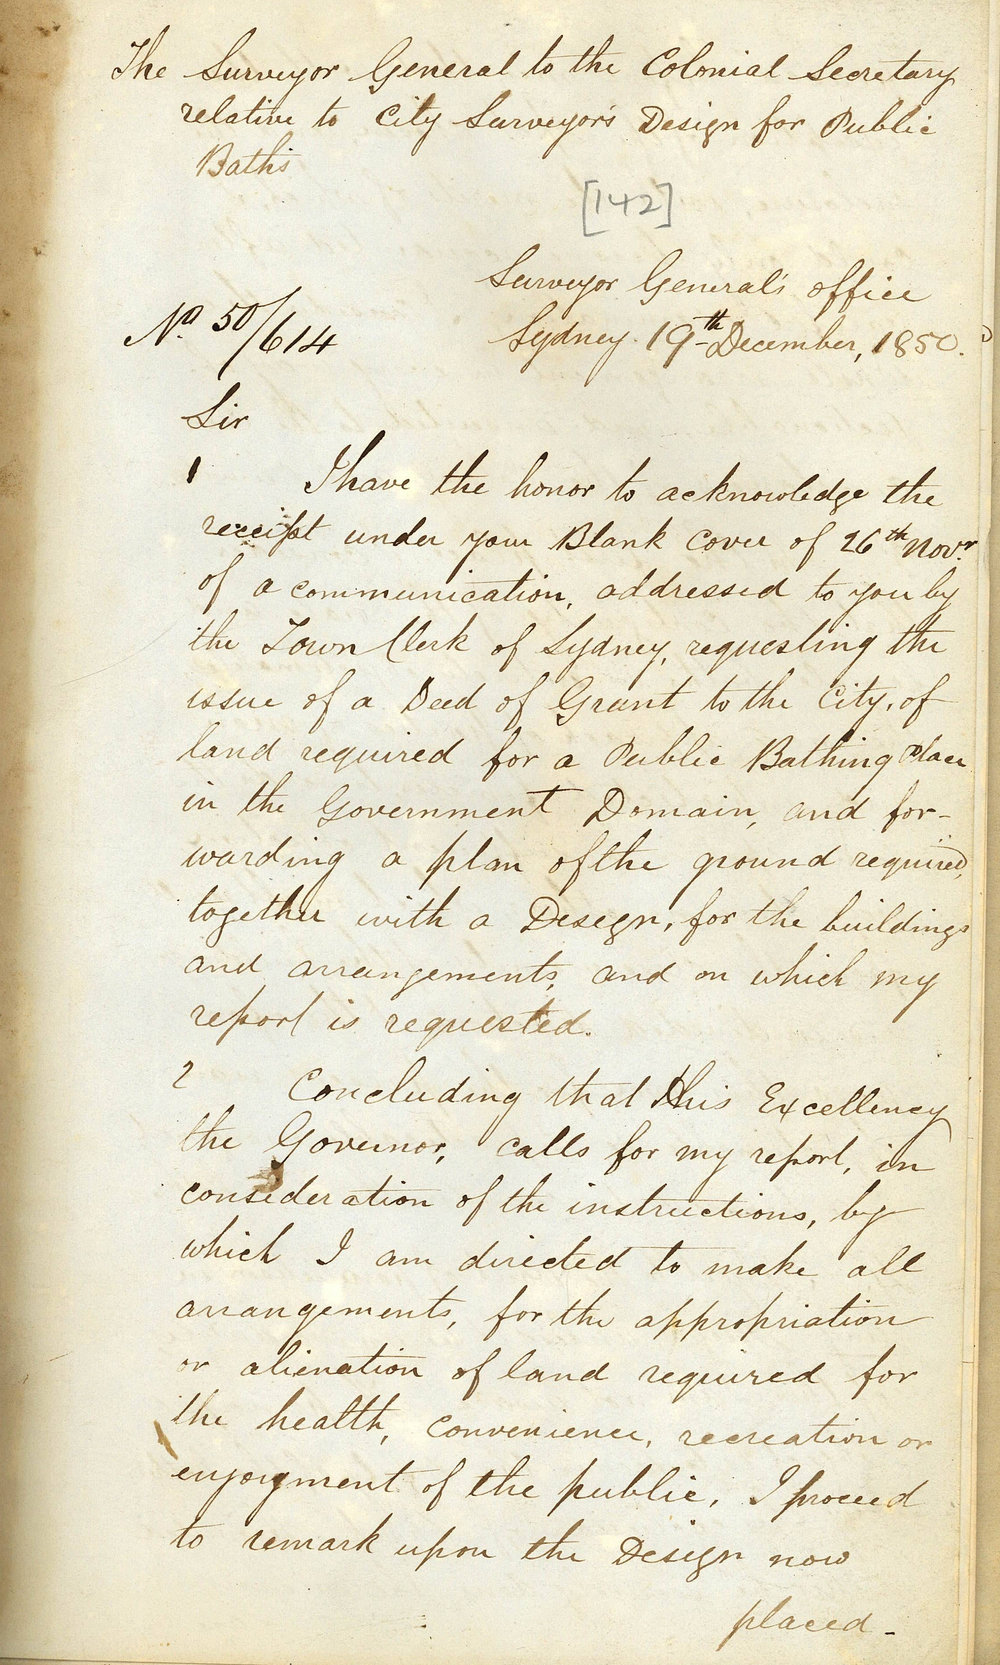 The Surveyor General to the Colonial Secretary
relative to City Surveyor's Design for Public
Baths
[142]
Surveyor General's office
No. 50/614
Sydney 19th December, 1850.
Sir
1 I have the honor to acknowledge the
receipt under your Blank cover of 26th Novr.
of a communication, addressed to you by
the Town Clerk of Sydney, requesting the
issue of a Deed of Grant to the City, of
land required for a Public Bathing place
in the Government Domain, and for-
warding a plan of the ground required,
together with a Design, for the buildings
and arrangements, and on which my
report is requested.
2 Concluding that His Excellency
the Governor, calls for my report, in
consideration of the instructions, by
which I am directed to make all
arrangements, for the appropriation
or alienation of land required for
the health, convenience, recreation or
enjoyment of the public, I proceed
to remark upon the Design now
placed -